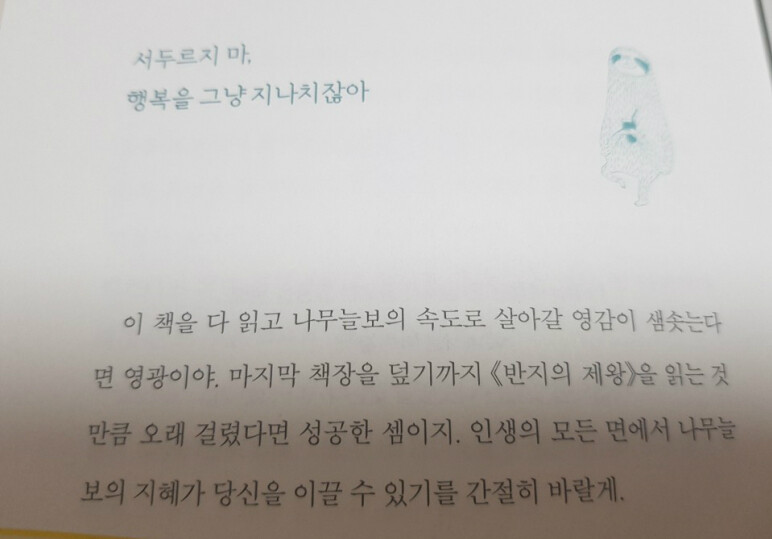 서두르지 마,
행복을 그냥 지나치잖아
이 책을 다 읽고 나무늘보의 속도로 살아갈 영감이 샘솟는다
면 영광이야. 마지막 책장을 덮기까지 《반지의 제왕》을 읽는 것
만큼 오래 걸렸다면 성공한 셈이지. 인생의 모든 면에서 나무늘
보의 지혜가 당신을 이끌 수 있기를 간절히 바랄게.